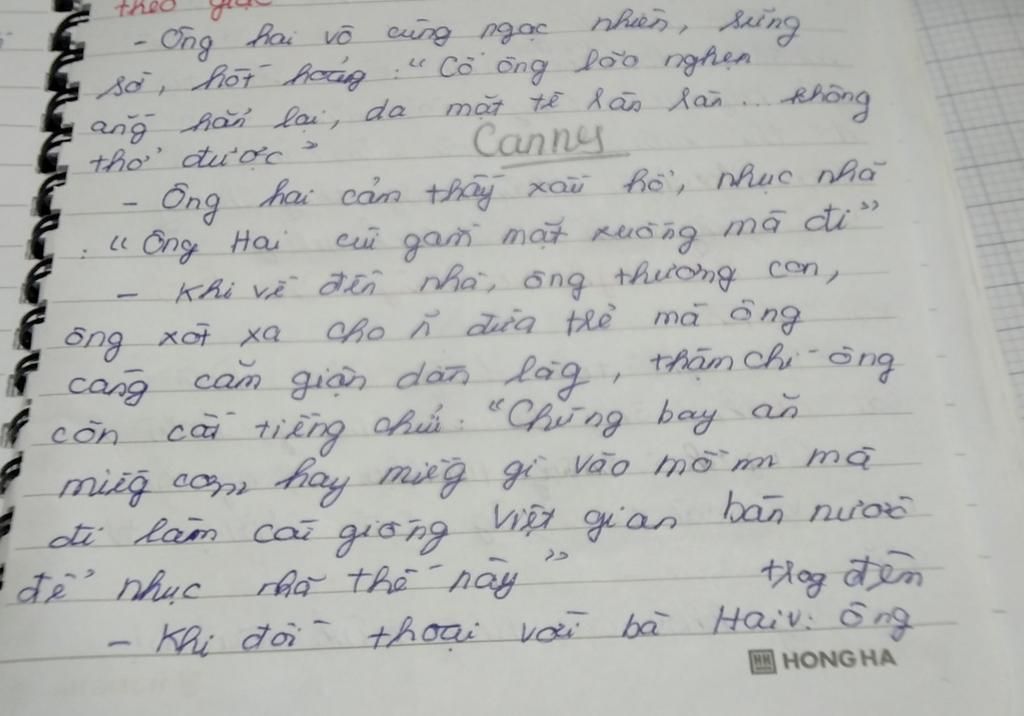 theo giặc
- Ông hai vô cùng ngạc nhiên, sững
sờ, hốt hoảng: "Cổ ông lão nghẹn
ắng hẳn lại, da mặt tê rân rân... không
thở được"
Canny
- Ông hai cảm thấy xấu hổ, nhục nhã
: "Ông Hai cúi gằm mặt xuống mà đi"
- Khi về đến nhà, ông thương con,
ông xót xa cho ñ đứa trẻ mà ông
càng căm giận dân làg, thậm chí ông
còn cất tiếng chửi: "Chúng bay ăn
miếg cơm hay miếg gì vào mồm mà
đi làm cái giống Việt gian bán nước
để nhục nhã thế này"
trog đêm
- Khi đối thoại với bà Hai v: Ông
HONG HA